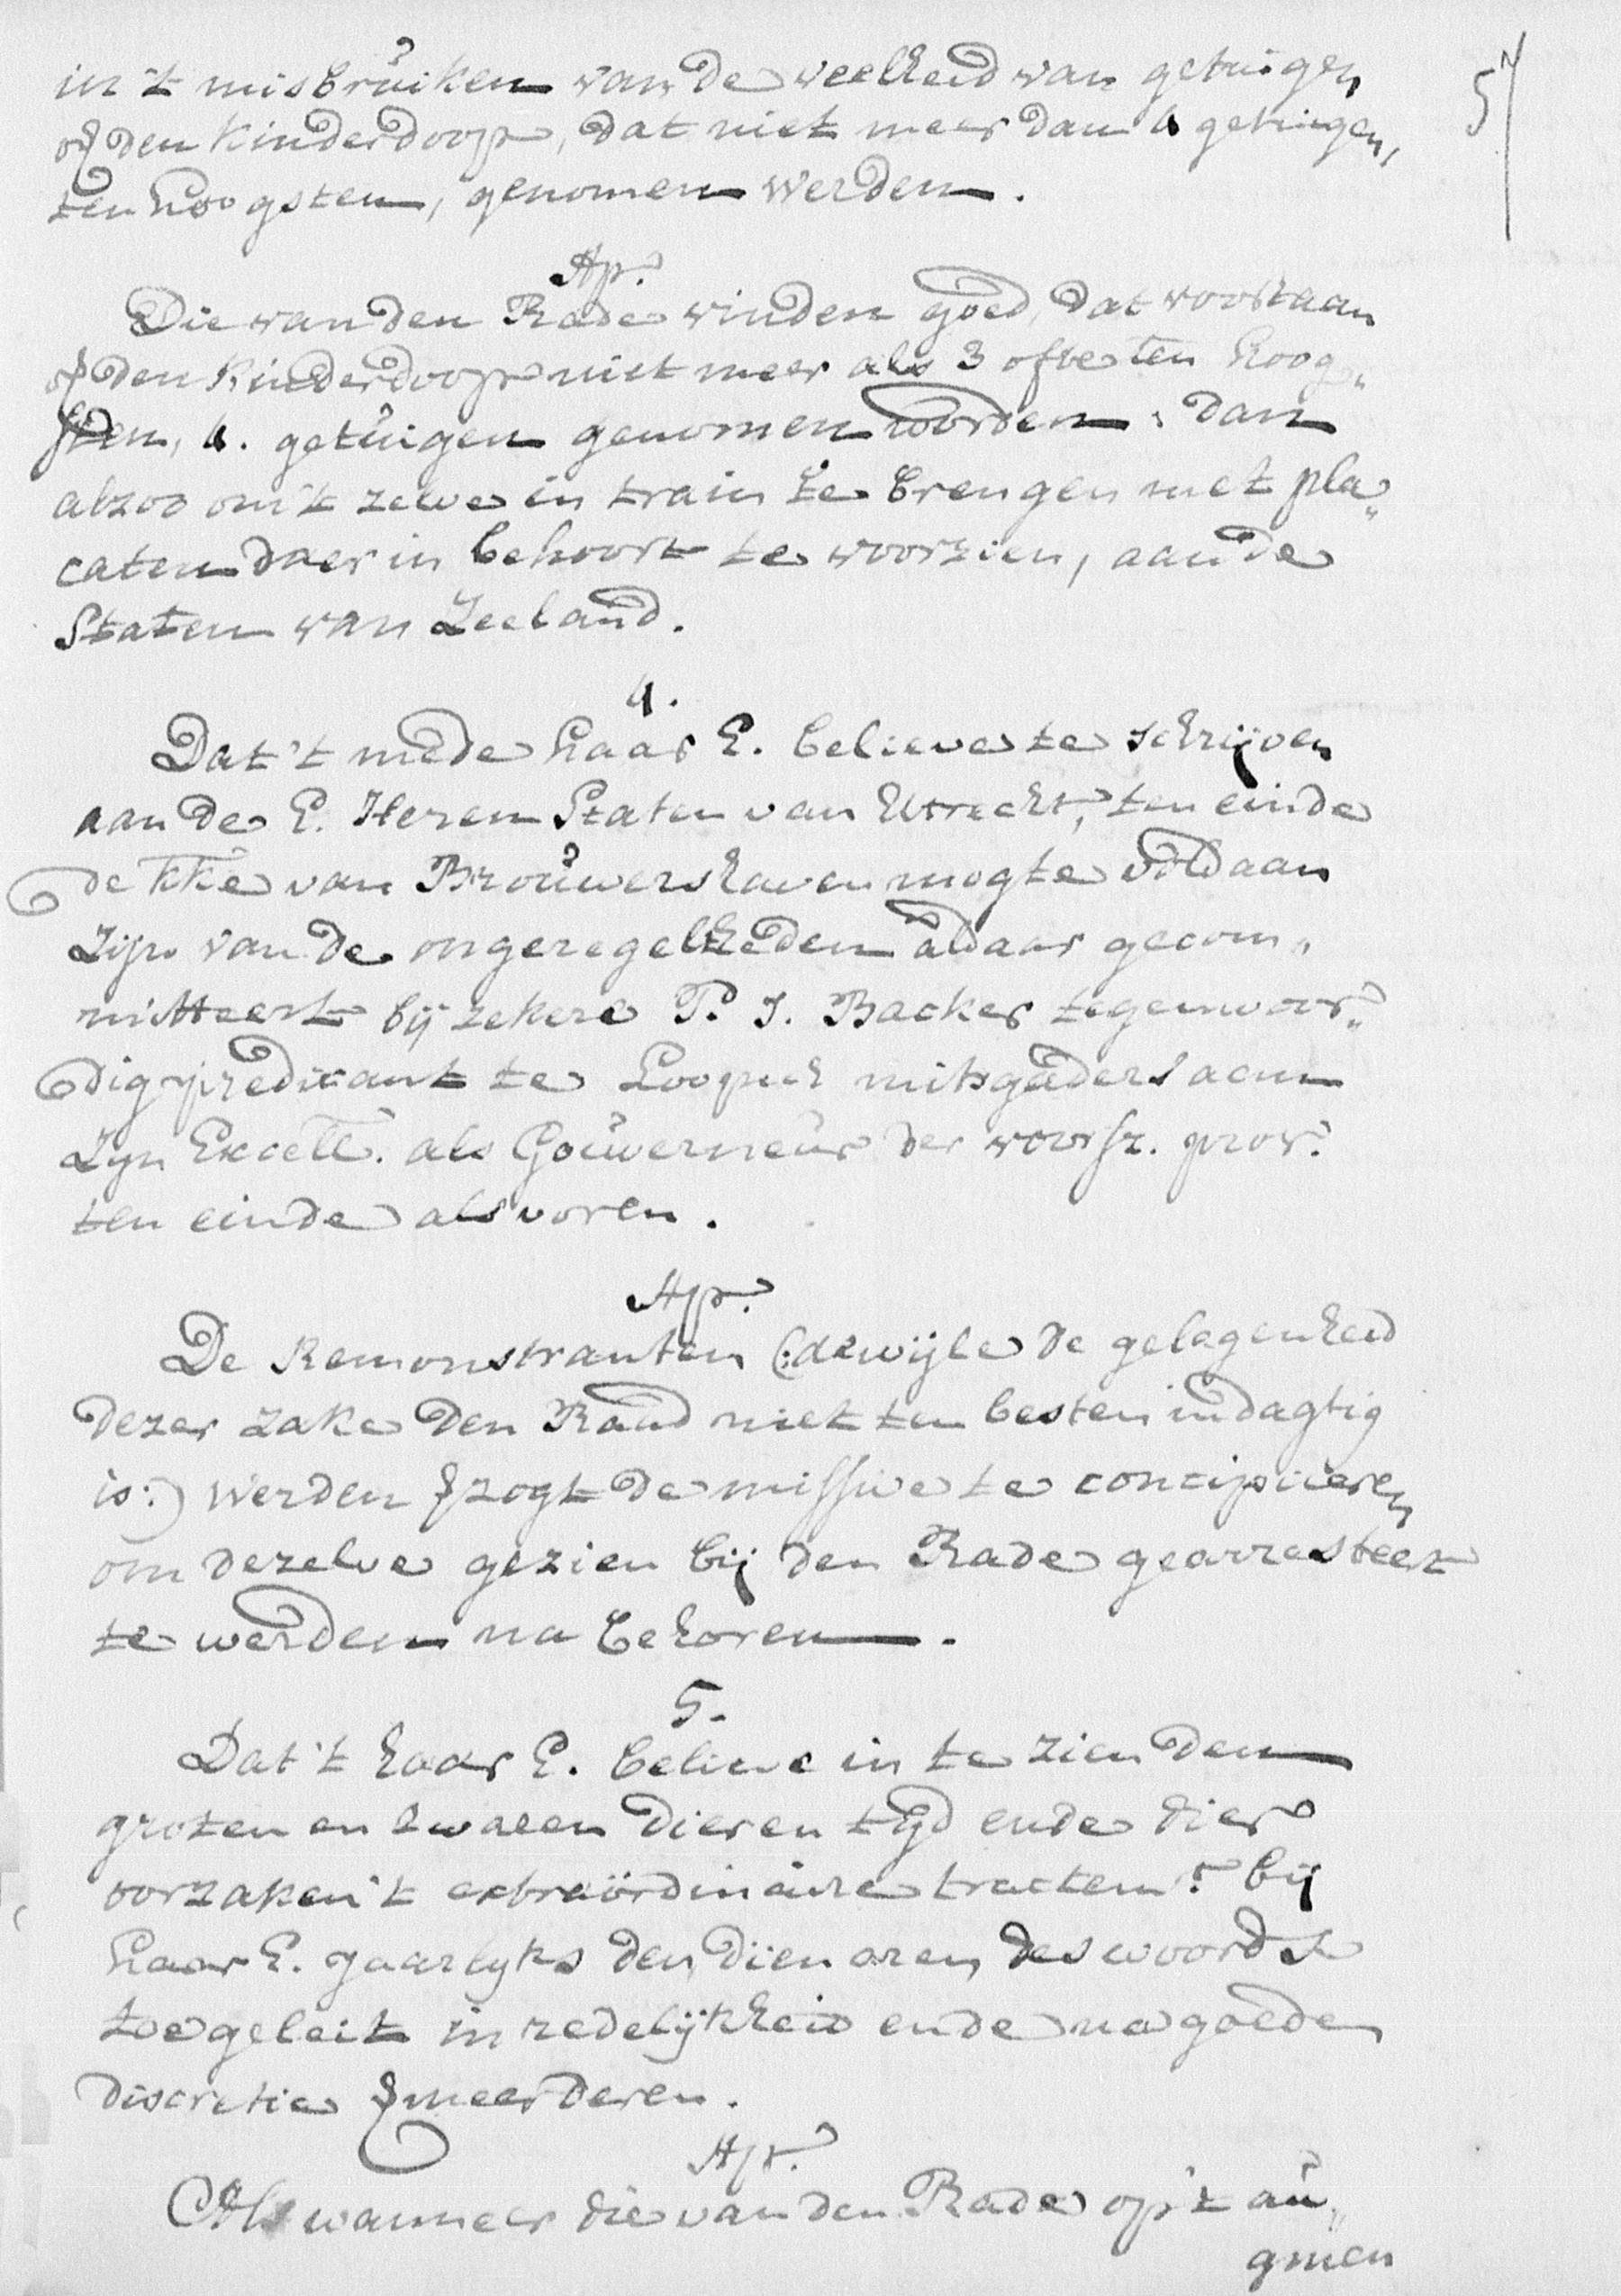 57
in 't misbruiken van de veelheid van getuigen
op den kinderdoop, dat niet meer dan 4 getuigen,
ten hoogsten, genomen werden.
Ap.
Die van den Rade vinden goed, dat voortaan
op den kinderdoop niet meer als 3 ofte ten hoog„
sten, 4. getuigen genomen worden: dan
alzoo om 't zelve in train te brengen met pla„
caten daer in behoort te voorzien, aan de
Staten van Zeeland.
4.
Dat 't mede haar E. believe te schrijven
aan de E. Heren Staten van Utrecht, ten einde
de kke van Brouwershaven mogte voldaan
zijn van de ongeregeltheden aldaar gecom„
mitteert bij zekere P. J. Backer tegenwoor„
dig predicant te Loopick mitsgaders aan
Zyn Excell. als Gouverneur der voorsz. prov.
ten einde als voren.
Ap.
De Remonstranten (: dewijle de gelegenheid
dezer zake den Raad niet ten besten indagtig
is:) werden verzogt de missive te concipiieren
om dezelve gezien bij den Rade gearresteert
te werden na behoren.
5.
Dat 't haar E. believe in te zien den
groten en swaren dieren tijd ende dier
oorzaken 't extraördinaire tractemt. bij
haar E. jaarlyks den dienaren des woords
toegeleit in redelijkheid ende na goede
discretie vermeerderen.
Ap.
Als wanneer die van den Rade op 't au„
gmen